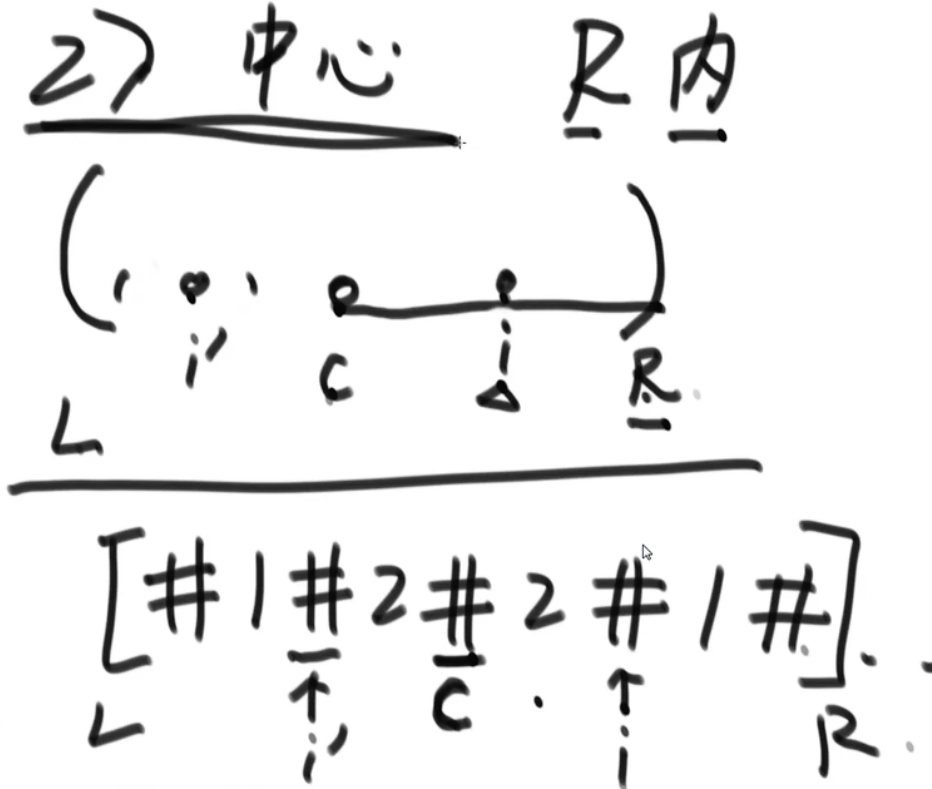 2) 中心 R 内
( i' C i R )
L
[ # 1 # 2 # 2 # 1 # ] . .
L i' C . i R